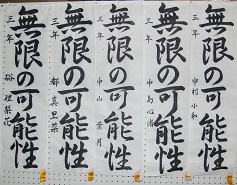 無限の可能性
三年 中村 小和
無限の可能性
三年 中島心
無限の可能性
三年 中山 葉月
無限の可能性
三年 都 真里菜
無限の可能性
三年 梨花